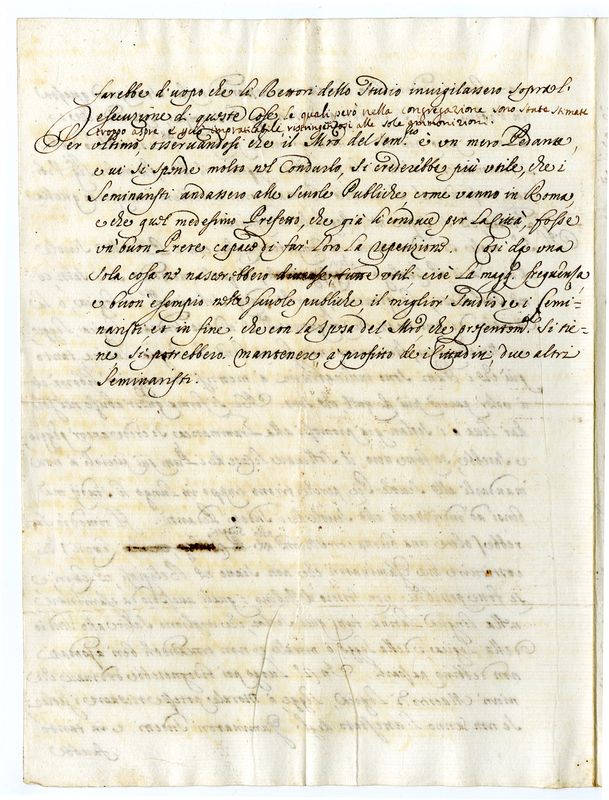 sarebbe d'uopo che li Rettori dello Studio invigilassero sopra l'
esecuzione di queste Cose, le quali però nella Congregazione sono state stimate
troppo aspre, e restringendosi alle sole ammonizioni.
Per ultimo, osservandosi che il Mro del Sem.º è un mero Pedante,
e vi si spende molto nel Condurlo, si crederebbe più utile, che i
Seminaristi andassero alle Scuole Publiche come vanno in Roma,
e che quel medesimo Prefetto, che già li conduce per la Città, fosse
un buon Prete capace di far loro la repetizione. Così da una
sola cosa ne nascerebbero utili cioè la magg. frequenza,
e buon esempio nelle scuole publiche il miglior Studio de i Semi=
naristi et in fine, che con la spesa del Mro che presentem.te si tie=
ne si potrebbero mantenere, a profitto de i Cittadini, due altri
Seminaristi.